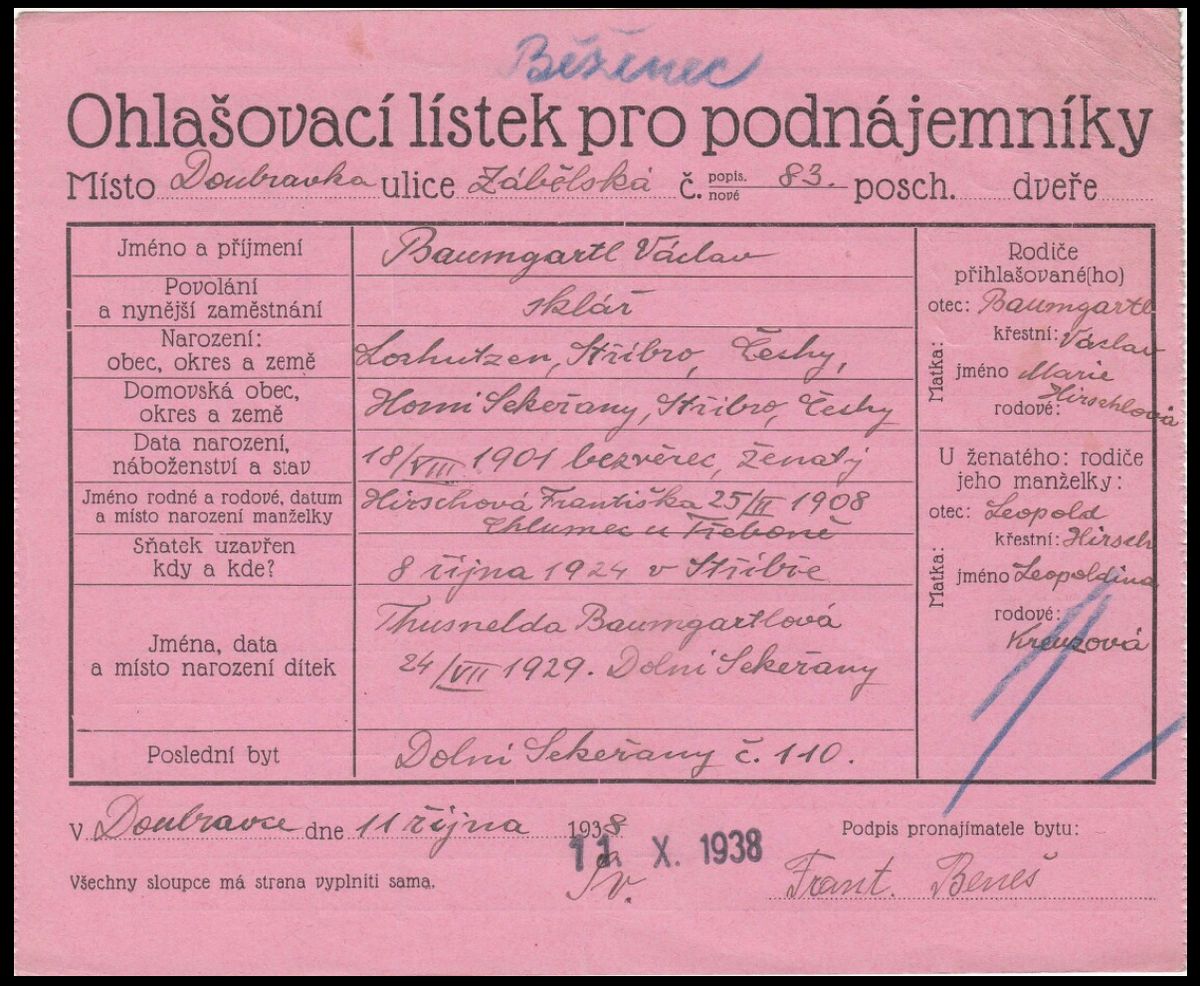 Běženec
Ohlašovací lístek pro podnájemníky
Místo Doubravka ulice Zábělská č. popis. nové 83. posch. dveře
Jméno a příjmení
Baumgartl Václav
Povolání
a nynější zaměstnání
sklář
Narození:
obec, okres a země
Loshutzen, Stříbro, Čechy,
Domovská obec,
okres a země
Horní Sekeřany, Stříbro, Čechy
Data narození,
náboženství a stav
18/VIII 1901 bezvěrec, ženatý
Jméno rodné a rodové, datum
a místo narození manželky
Hirschová Františka 25/II 1908
Chlumec u Třeboně
Sňatek uzavřen
kdy a kde?
8 října 1924 v Stříbře
Jména, data
a místo narození dítek
Thusnelda Baumgartlová
24/VII 1929. Dolní Sekeřany
Poslední byt
Dolní Sekeřany č. 110.
Rodiče
přihlašované(ho)
otec: Baumgartl
křestní: Václav
Matka:
jméno Marie
rodové: Hirschlová
U ženatého: rodiče
jeho manželky:
otec: Leopold
křestní: Hirsch
Matka:
jméno Leopoldina
rodové:
Kreuzová
V Doubravce dne 11 října 1938
11. X. 1938
Podpis pronajímatele bytu:
Všechny sloupce má strana vyplniti sama.
Frant. Beneš